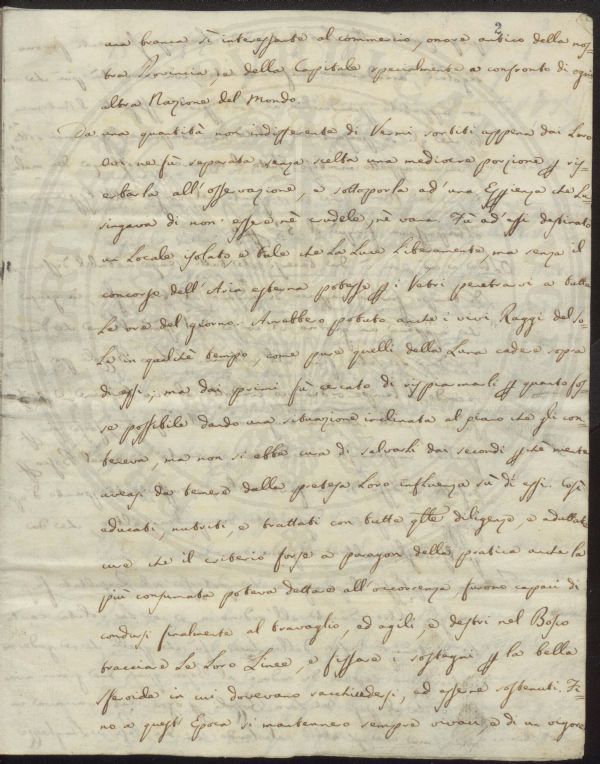 2
una branca sì interessante al commercio, onore antico della nos-
tra Provincia, e della Capitale specialmente a confronto di ogni
altra Nazione del Mondo.
Da una quantità non indifferente di Vermi sortiti appena dai Loro
Ovi ne fù separata senza scelta una mediocre porzione p ris-
erbarla all'osservazione, e sottoporla ad' una Esperienza che Lu-
singava di non' essere nè crudele, nè vana. Fù ad' essi destinato
un Locale isolato, e tale che La Luce Liberamente, ma senza il
concorso dell'Aria esterna potesse p i Vetri penetrarvi a tutte
Le ore del giorno. Avrebbero potuto anche i vivi Raggi del So-
Le in qualche tempo, come pure quelli della Luna cadere sopra
di essi, ma dai primi fù cercato di risparmiarli p quanto fos-
se possibile dando una situazione inclinata al piano che gli con-
teneva, ma non si ebbe cura di salvarli dai secondi p chè niente
aveasi da temere dalla pretesa Loro influenza sù di essi. Così
educati, nutriti, e trattati con tutte qste diligenze, e adattate
cure che il criterio forse a paragon della pratica anche la
più consumata poteva dettare all'occorrenza, furono capaci di
condursi finalmente al travaglio, ed agili, e destri nel Bosco
tracciare Le Loro Linee, e fissare i sostegni p la bella
sferoide in cui dovevano racchiudersi, ed essere sostenuti. Fi-
no a quest' Epoca si mantennero sempre vivaci, e di un vigore